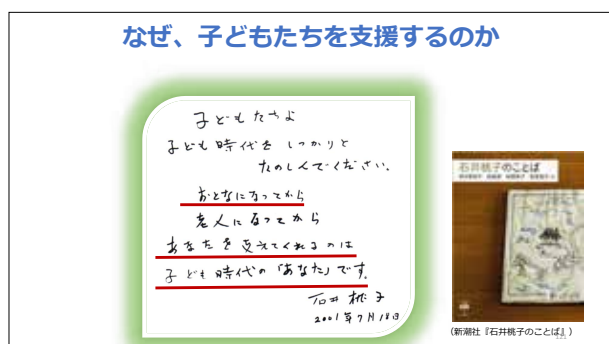 なぜ、子どもたちを支援するのか
子どもたちよ
子ども時代を しっかりと
たのしんでください。
おとなになってから
老人になってから
あなたを支えてくれるのは
子ども時代の「あなた」です。
石井 桃子
2001年7月18日
石井桃子のことば
(新潮社『石井桃子のことば』)